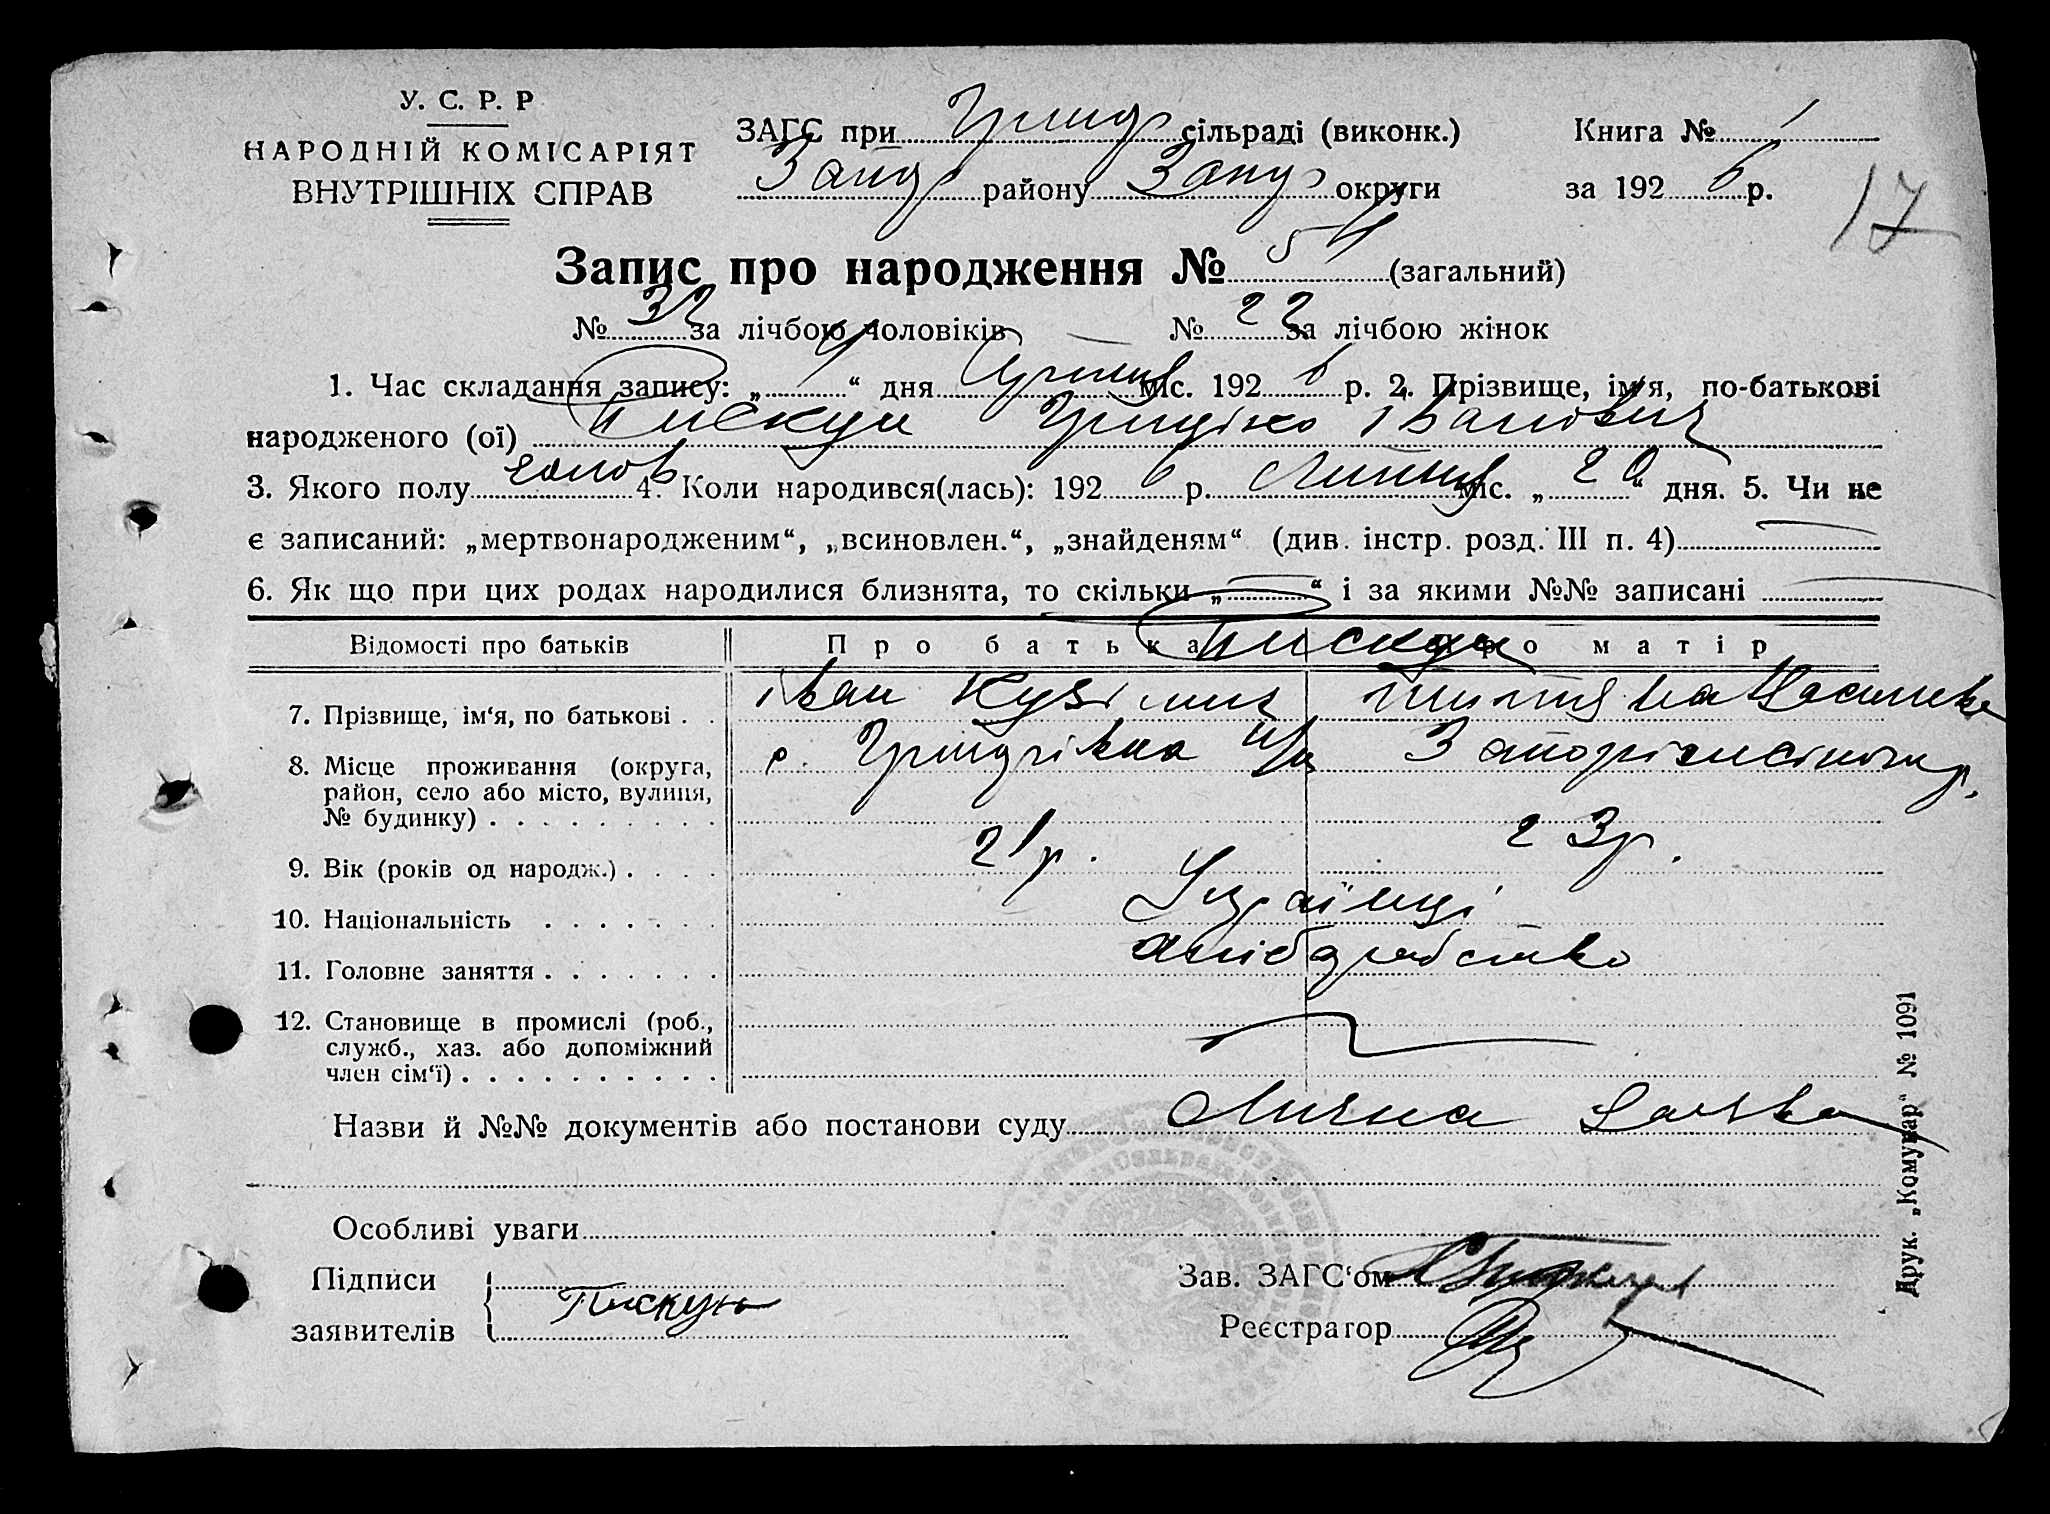 У. С. Р. Р
НАРОДНІЙ КОМІСАРІЯТ
ВНУТРІШНІХ СПРАВ
ЗАГС при сільраді (виконк.)
району округи
Книга № 1
за 1926 р.
17
Запис про народження № 54 (загальний)
№ 32 за лічбою чоловіків № 22 за лічбою жінок
1. Час складання запису: „ 4 “ дня міс. 1926 р. 2. Прізвище, ім'я, по-батькові
народженого (ої) Пискун Грицько Іванович
3. Якого полу чолов 4. Коли народився(лась): 1926 р. Липня міс. „ 20 “ дня. 5. Чи не
є записаний: „мертвонародженим“, „всиновлен.“, „знайденям“ (див. інстр. розд. III п. 4)
6. Як що при цих родах народилися близнята, то скільки „ “ і за якими №№ записані
Відомості про батьків Про батька Про матір
Пискун
7. Прізвище, ім'я, по батькові . . Іван Кузьмич
8. Місце проживання (округа, район, село або місто, вулиця, № будинку) . . . . . . . . . с. Григорівка Запорізького р.
9. Вік (років од народж.) . . . . 21 р. 23 р.
10. Національність . . . . . . . Українці
11. Головне заняття . . . . . . . хліборобство
12. Становище в промислі (роб., служб., хаз. або допоміжний член сім'ї) . . . . . . . . . .
Назви й №№ документів або постанови суду Лична заява
Особливі уваги
Підписи
заявителів Пискун
Зав. ЗАГС'ом
Реєстратор
Друк. „Комунар“ № 1091